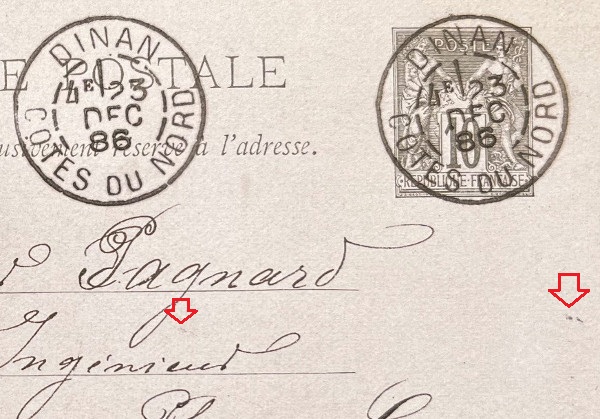 DINAN
4E 23
DEC
86
COTES DU NORD
E POSTALE
POSTES
DINAN
4E 23
DEC
86
COTES DU NORD
10
REPUBLIQUE FRANÇAISE
réservé à l'adresse.
Pagnard
Ingénieur